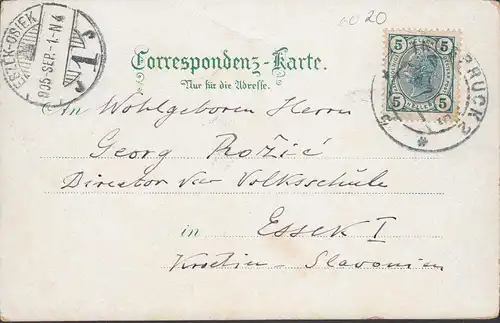 6020
ESZEK-OSIEK
905 SEP. -1. N 4
1
5 5
5 HELLER 5
BRUCK 2
Correspondenz-Karte.
Nur für die Adresse.
An Wohlgeboren Herrn
Georg Rožić
Director der Volksschule
in Essek I
Kroatien-Slavonien